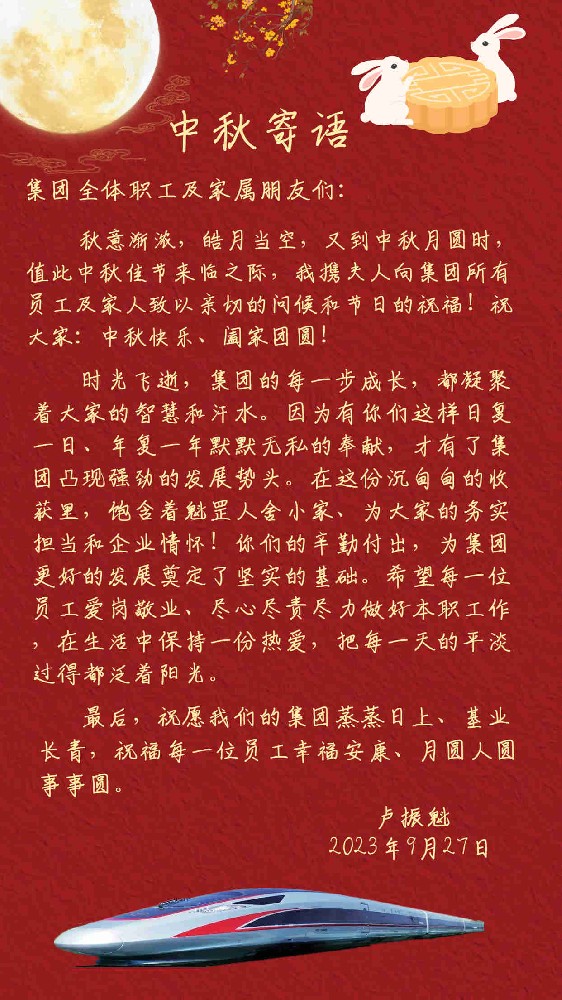 中秋寄语
集团全体职工及家属朋友们：
秋意渐浓，皓月当空，又到中秋月圆时，
值此中秋佳节来临之际，我携夫人向集团所有
员工及家人致以亲切的问候和节日的祝福！祝
大家：中秋快乐、阖家团圆！
时光飞逝，集团的每一步成长，都凝聚
着大家的智慧和汗水。因为有你们这样日复
一日、年复一年默默无私的奉献，才有了集
团凸现强劲的发展势头。在这份沉甸甸的收
获里，饱含着魁罡人舍小家、为大家的务实
担当和企业情怀！你们的辛勤付出，为集团
更好的发展奠定了坚实的基础。希望每一位
员工爱岗敬业、尽心尽责尽力做好本职工作
，在生活中保持一份热爱，把每一天的平淡
过得都泛着阳光。
最后，祝愿我们的集团蒸蒸日上、基业
长青，祝福每一位员工幸福安康、月圆人圆
事事圆。
卢振魁
2023年9月27日